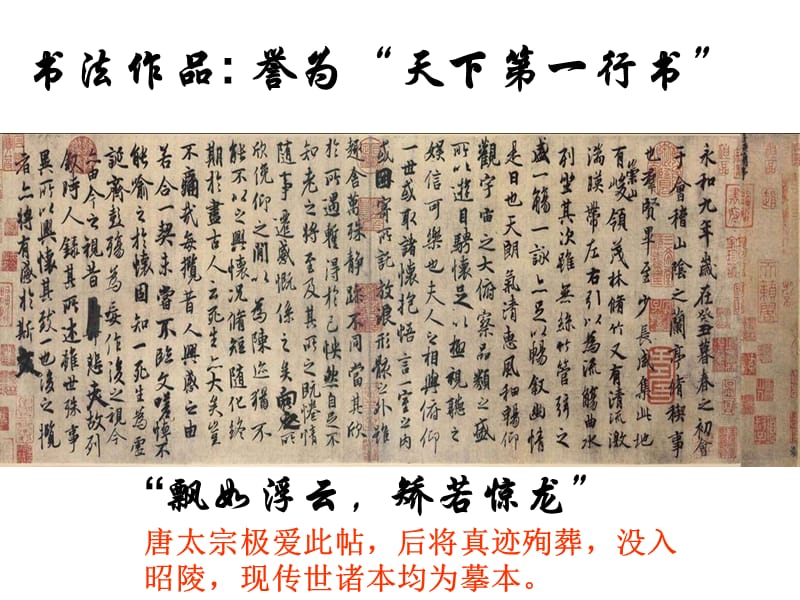 书法作品：誉为“天下第一行书”
永和九年歲在癸丑暮春之初會
于會稽山陰之蘭亭脩稧事
也羣賢畢至少長咸集此地
有崇山峻領茂林脩竹又有清流激
湍暎帶左右引以為流觴曲水
列坐其次雖無絲竹管弦之
盛一觴一詠亦足以暢敘幽情
是日也天朗氣清惠風和暢仰
觀宇宙之大俯察品類之盛
所以遊目騁懷足以極視聽之
娛信可樂也夫人之相與俯仰
一世或取諸懷抱悟言一室之內
或因寄所託放浪形骸之外雖
趣舍萬殊靜躁不同當其欣
於所遇蹔得於己怏然自足不
知老之將至及其所之既惓情
隨事遷感慨係之矣向之所
欣俛仰之閒以為陳迹猶不
能不以之興懷況脩短隨化終
期於盡古人云死生亦大矣豈
不痛哉每攬昔人興感之由
若合一契未嘗不臨文嗟悼不
能喻之於懷固知一死生為虛
誕齊彭殤為妄作後之視今
亦由今之視昔悲夫故列
敘時人錄其所述雖世殊事
異所以興懷其致一也後之攬
者亦將有感於斯文
“飘如浮云，矫若惊龙”
唐太宗极爱此帖，后将真迹殉葬，没入
昭陵，现传世诸本均为摹本。